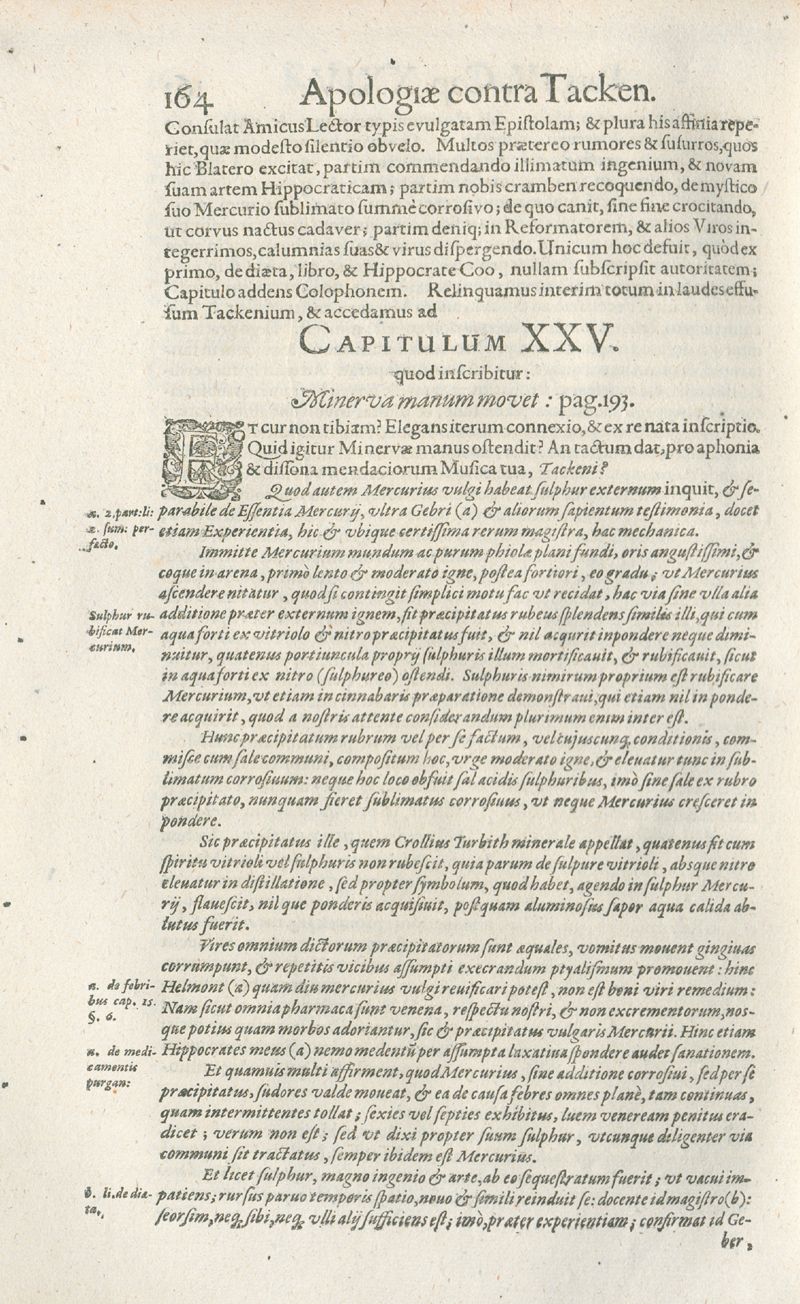 164 Apologiæ contra Tacken.
Conſulat Amicus Lector typis evulgatam Epiſtolam; & plura his affinia repe-
riet, quæ modeſto ſilentio obvelo. Multos prætereo rumores & ſuſurros, quos
hic Blatero excitat, partim commendando illimatum ingenium, & novam
ſuam artem Hippocraticam; partim nobis cramben recoquendo, de myſtico
ſuo Mercurio ſublimato ſummè corroſivo; de quo canit, ſine fine crocitando,
ut corvus nactus cadaver; partim deniq; in Reformatorem, & alios Viros in-
tegerrimos, calumnias ſuas & virus diſpergendo. Unicum hoc defuit, quòd ex
primo, de diæta, libro, & Hippocrate Coo, nullam ſubſcripſit autoritatem;
Capitulo addens Colophonem. Relinquamus interim totum in laudes effu-
ſum Tackenium, & accedamus ad
CAPITULUM XXV.
quod inſcribitur:
Minerva manum movet: pag. 193.
ET cur non tibiam? Elegans iterum connexio, & ex re nata inſcriptio.
Quid igitur Minervæ manus oſtendit? An tactum dat, pro aphonia
& diſſona mendaciorum Muſica tua, Tackeni?
Quod autem Mercurius vulgi habeat ſulphur externum inquit, & ſe-
a. 2. part. li: parabile de Eſſentia Mercurij, vltra Gebri (a) & aliorum ſapientum teſtimonia, docet
2. ſum: per- etiam Experientia, hic & vbique certiſſima rerum magiſtra, hac mechanica.
fecto. Immitte Mercurium mundum ac purum phiolæ plani fundi, oris anguſtiſſimi, &
coque in arena, primò lento & moderato igne, poſtea fortiori, eo gradu; vt Mercurius
aſcendere nitatur, quod ſi contingit ſimplici motu fac vt recidat, hac via ſine vlla alia
Sulphur ru- additione præter externum ignem, fit præcipitatus rubeus ſplendens ſimilis illi, qui cum
bificat Mer- aqua forti ex vitriolo & nitro præcipitatus fuit, & nil acqurit in pondere neque dimi-
curium. nuitur, quatenus portiuncula proprij ſulphuris illum mortificauit, & rubificauit, ſicut
in aqua forti ex nitro (ſulphureo) oſtendi. Sulphuris nimirum proprium eſt rubificare
Mercurium, vt etiam in cinnabaris præparatione demonſtraui, qui etiam nil in ponde-
re acquirit, quod a noſtris attente conſiderandum plurimum enim intereſt.
Hunc præcipitatum rubrum vel per ſe factum, vel cujuscunq; conditionis, com-
miſce cum ſale communi, compoſitum hoc, vrge moderato igne, & eleuatur tunc in ſub-
limatum corroſiuum: neque hoc loco obfuit ſal acidis ſulphuribus, imò ſine ſale ex rubro
præcipitato, nunquam fieret ſublimatus corroſiuus, vt neque Mercurius creſceret in
pondere.
Sic præcipitatus ille, quem Crollius Turbith minerale appellat, quatenus fit cum
ſpiritu vitrioli vel ſulphuris non rubeſcit, quia parum de ſulpure vitrioli, absque nitro
eleuatur in diſtillatione, ſed propter ſymbolum, quod habet, agendo in ſulphur Mercu-
rij, flaueſcit, nil que ponderis acquiſiuit, poſtquam aluminoſius ſapor aqua calida ab-
lutus fuerit.
Vires omnium dictorum præcipitatorum ſunt æquales, vomitus mouent gingiuas
corrumpunt, & repetitis vicibus aſſumpti execrandum ptyaliſmum promouent: hinc
a. de febri- Helmont (a) quam diu mercurius vulgi reuificari poteſt, non eſt boni viri remedium:
bus cap. 15. Nam ſicut omnia pharmaca ſunt venena, reſpectu noſtri, & non excrementorum, nos-
§. 6. que potius quam morbos adoriantur, ſic & præcipitatus vulgaris Mercurii. Hinc etiam
a. de medi- Hippocrates meus (a) nemo medentũ per aſſumpta laxatiua ſpondere audet ſanationem.
camentis Et quamuis multi affirment, quod Mercurius, ſine additione corroſiui, ſed per ſe
purgan: præcipitatus, ſudores valde moueat, & ea de cauſa febres omnes planè, tam continuas,
quam intermittentes tollat; ſexies vel ſepties exhibitus, luem veneream penitus era-
dicet; verum non eſt; ſed vt dixi propter ſuum ſulphur, vtcunque deligenter via
communi ſit tractatus, ſemper ibidem eſt Mercurius.
Et licet ſulphur, magno ingenio & arte, ab eo ſequeſtratum fuerit; vt vacui im-
b. li. de diæ- patiens; rurſus paruo temporis ſpatio, nouo & ſimili reinduit ſe: docente id magiſtro (b):
ta. ſeorſim, neq; ſibi, neq; vlli alij ſufficiens eſt; imò, præter experientiam; confirmat id Ge-
ber,